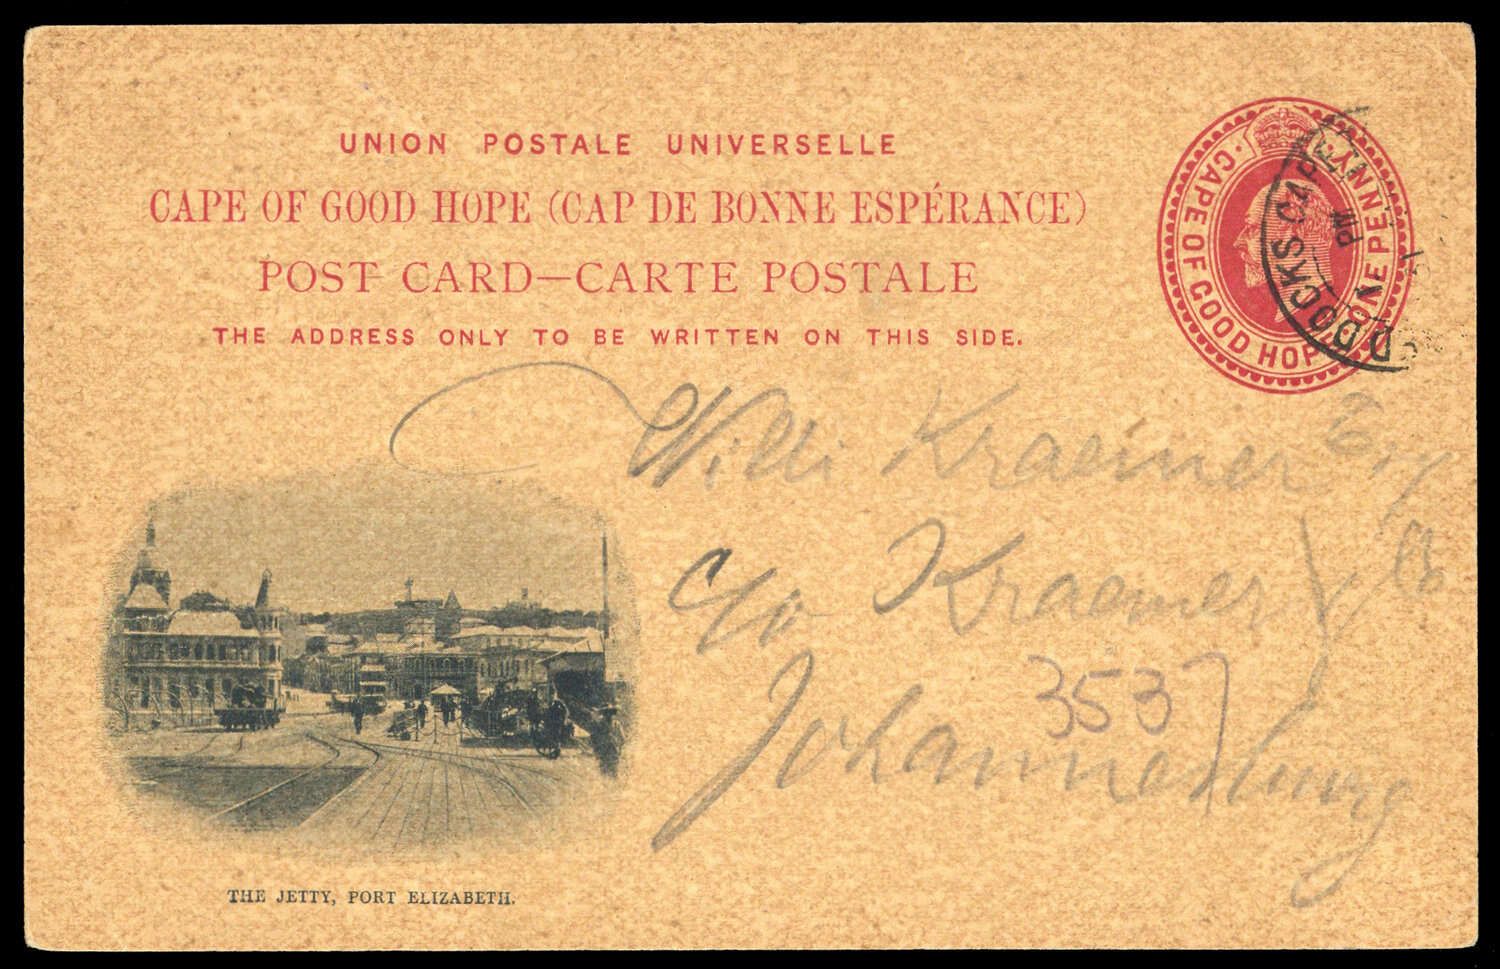 UNION POSTALE UNIVERSELLE
CAPE OF GOOD HOPE (CAP DE BONNE ESPÉRANCE)
POST CARD—CARTE POSTALE
THE ADDRESS ONLY TO BE WRITTEN ON THIS SIDE.
CAPE OF GOOD HOPE ONE PENNY
DOCKS CAPE
PM
Willi Kraemer
c/o Kraemer
3537
Johannesburg
THE JETTY, PORT ELIZABETH.